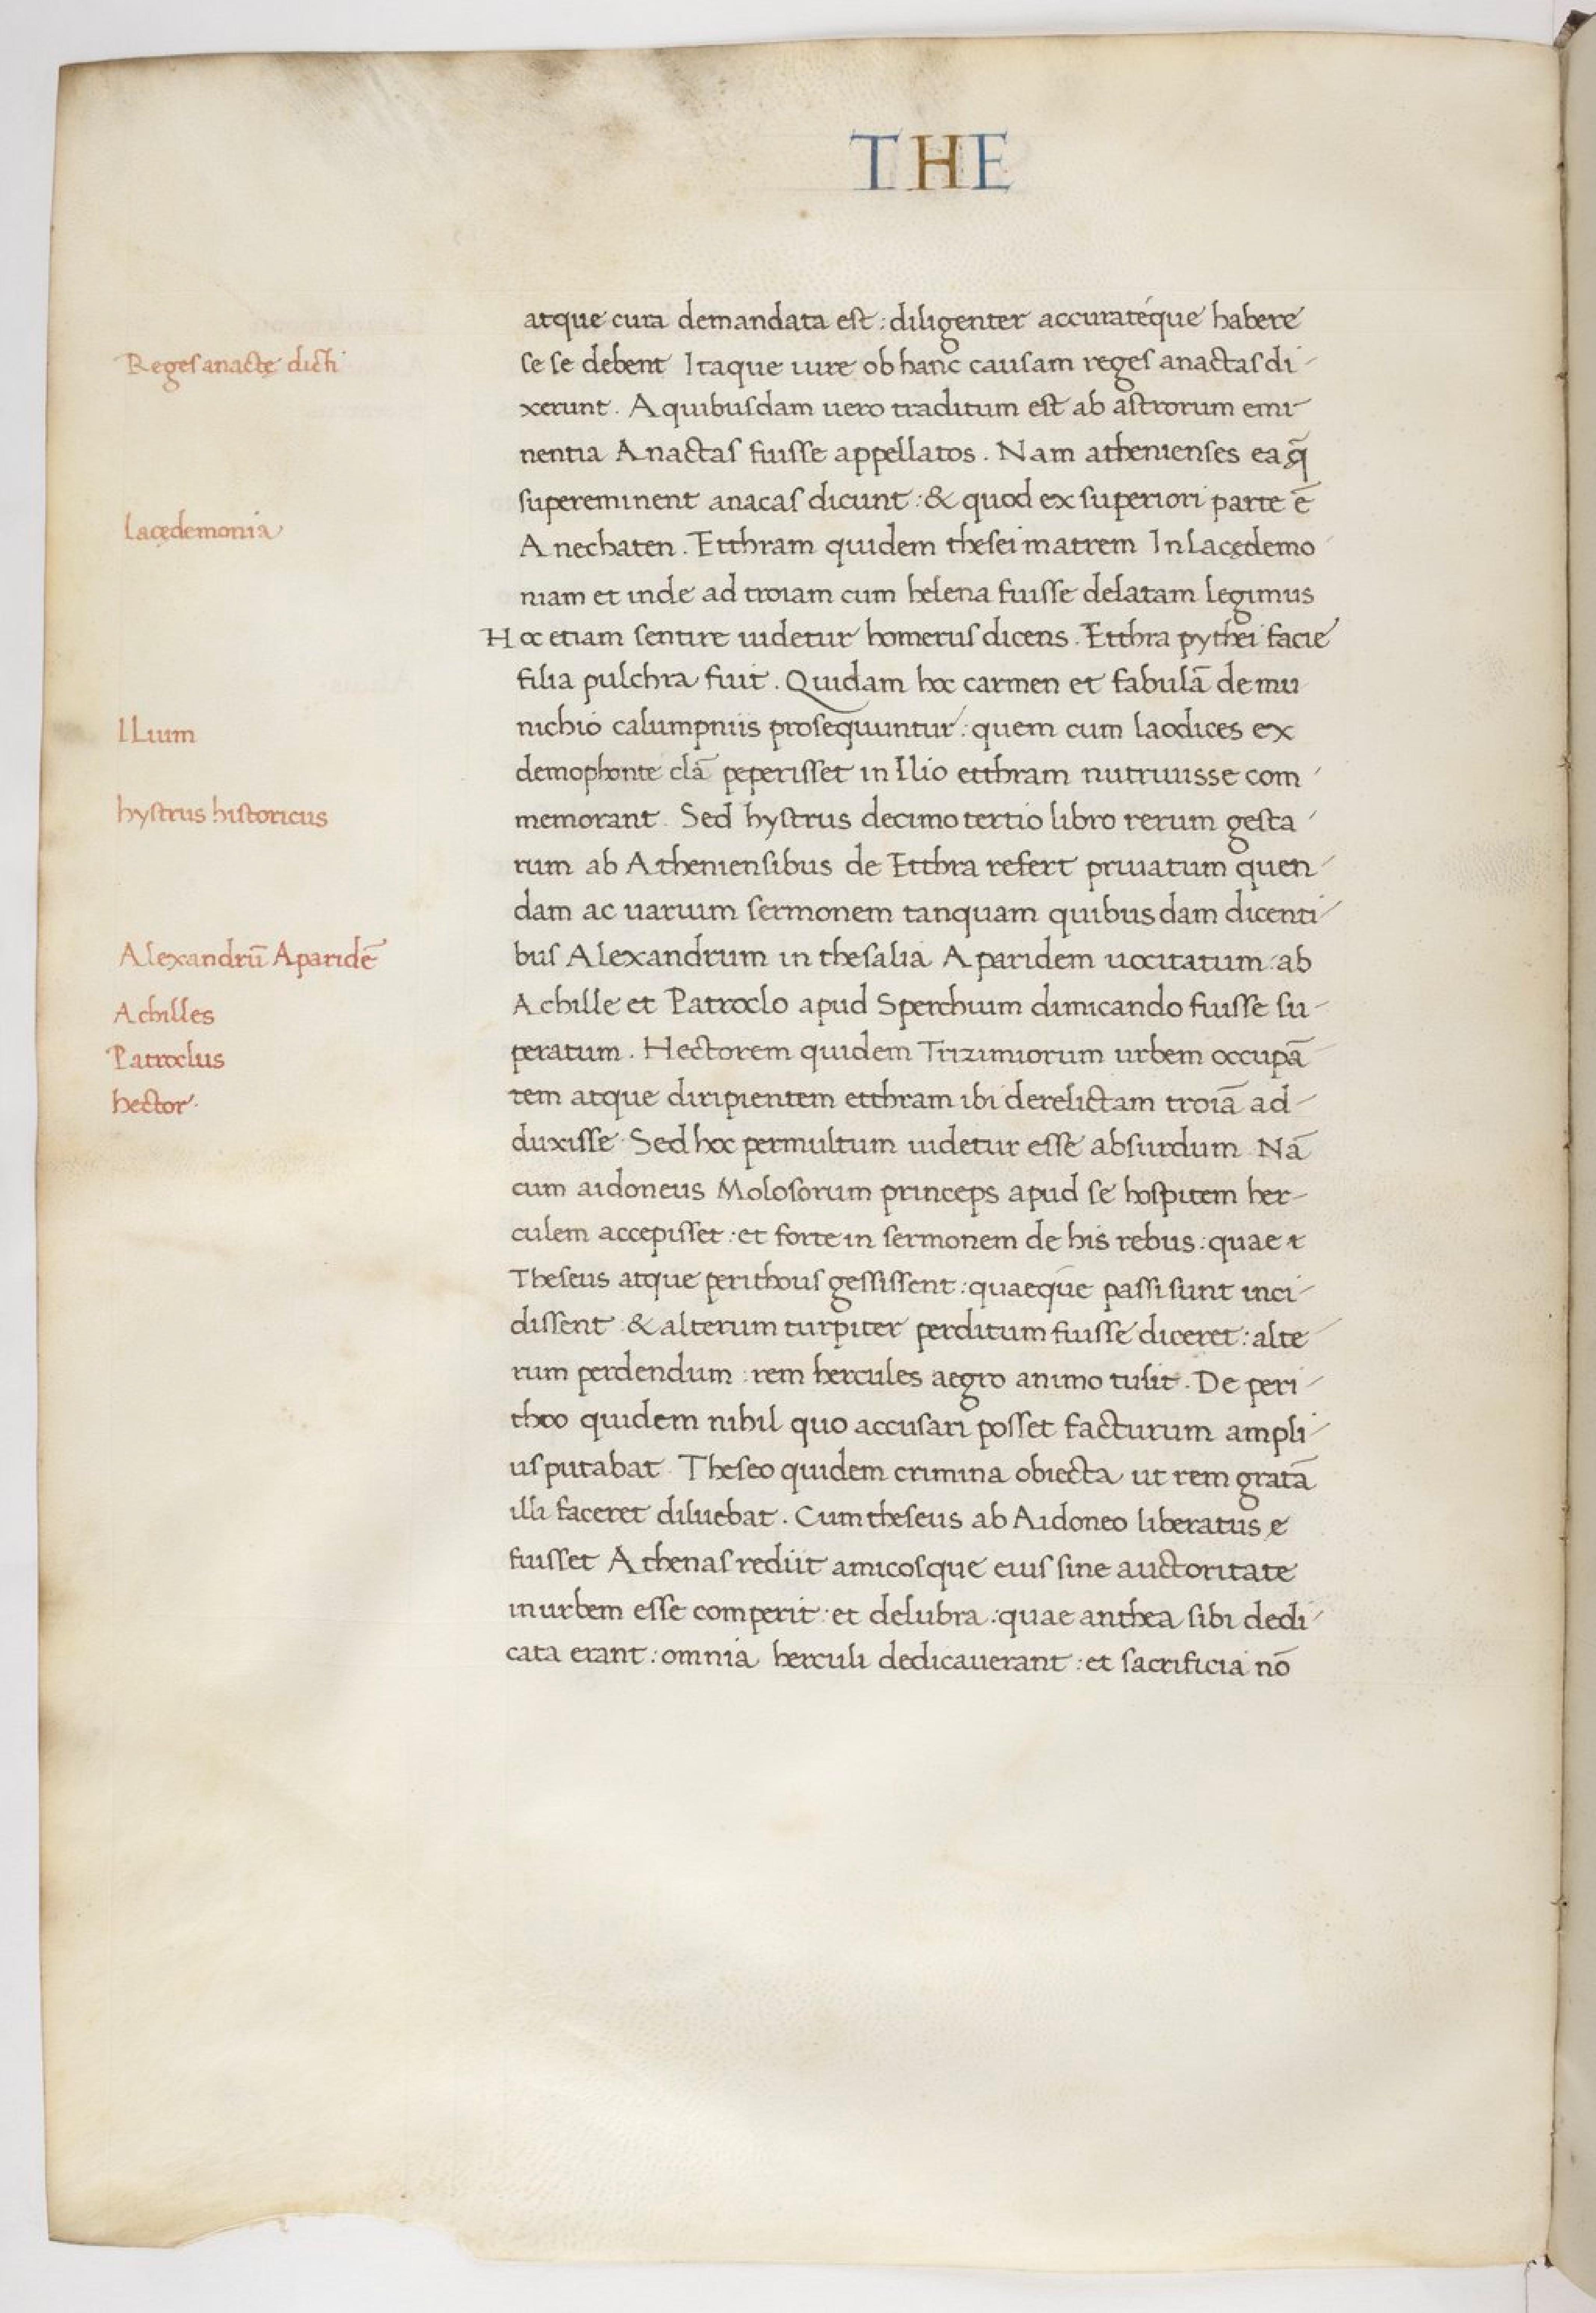 THE
atque cura demandata est : diligenter accuratéque habere
Reges anactę dicti
se se debent Itaque iure ob hanc causam reges anactas di-
xerunt . A quibusdam uero traditum est ab astrorum emi-
nentia Anactas fuisse appellatos . Nam athenienses ea q̄
supereminent anacas dicunt : & quod ex superiori parte ē
Lacędemonia
Anechaten . Etthram quidem thesei matrem In Lacędemo
niam et inde ad troiam cum helena fuisse delatam legimus
Hoc etiam sentire uidetur homerus dicens . Etthra pythei facie
filia pulchra fuit . Quidam hoc carmen et fabulā de mu
ILium
nichio calumpniis prosequuntur : quem cum laodices ex
demophonte clā peperisset in Ilio etthram nutriuisse com-
hystrus historicus
memorant . Sed hystrus decimo tertio libro rerum gesta-
rum ab Atheniensibus de Etthra refert priuatum quen-
dam ac uarium sermonem tanquam quibusdam dicenti-
Alexandrū Aparidē
bus Alexandrum in thesalia Aparidem uocitatum : ab
Achilles
Achille et Patroclo apud Sperchium dimicando fuisse su-
Patroclus
peratum . Hectorem quidem Trizimiorum urbem occupā-
hector .
tem atque diripientem etthram ibi derelictam troiā ad-
duxisse . Sed hoc permultum uidetur esse absurdum . Nā
cum aidoneus Molosorum princeps apud se hospitem her-
culem accepisset : et forte in sermonem de his rebus : quae
Theseus atque perithous gessissent : quaeque passi sunt inci-
dissent & alterum turpiter perditum fuisse diceret : alte-
rum perdendum : rem hercules aegro animo tulit . De peri-
thoo quidem nihil quo accusari posset facturum ampli-
us putabat . Theseo quidem crimina obiecta ut rem gratā
illi faceret diluebat . Cum theseus ab Aidoneo liberatus
fuisset Athenas rediit amicosque eius sine auctoritate
in urbem esse comperit : et delubra : quae anthea sibi dedi-
cata erant : omnia herculi dedicauerant : et sacrificia nō